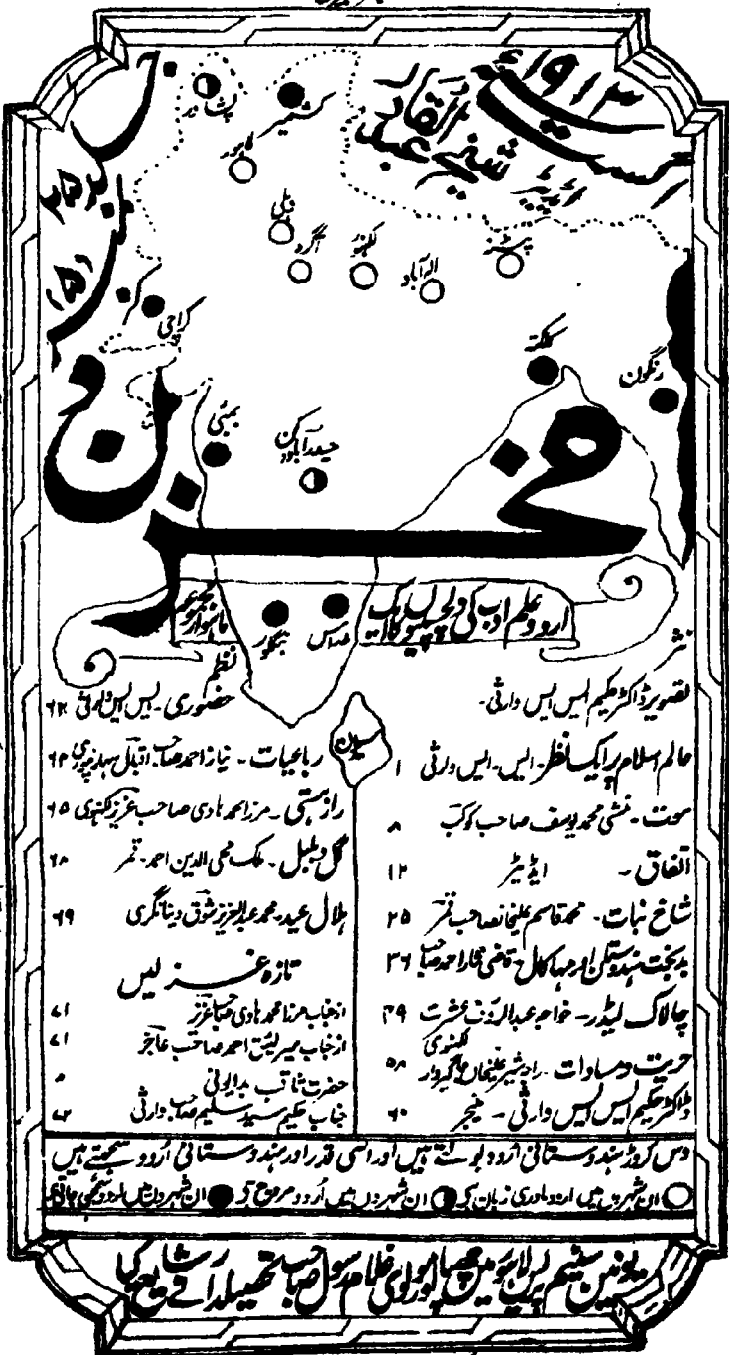 اگست ۱۹۱۳ء
ایڈیٹر شیخ عبدالقادر
جلد ۲۵
نمبر (۵)
پشاور
کشمیر
لاہور
دہلی
آگرہ
لکھنؤ
الہ آباد
پٹنہ
کراچی
کلکتہ
رنگون
بمبئی
حیدرآباد دکن
مخزن
اردو علم ادب کی دلچسپیوں کا ایک ماہوار مجموعہ
مدراس
بنگلور
سیلون
نثر
تصویر ڈاکٹر حکیم ایس ایس وارثی۔
عالم اسلام پر ایک نظر۔ ایس۔ ایس وارثی ۱
موت۔ منشی محمد یوسف صاحب کوکب ۸
اتفاق۔ ایڈیٹر ۱۲
شاخ نبات۔ محمد قاسم علیخانصاحب قمر ۲۵
بدبخت ہندوستان اور مہا کال۔ قاضی مختار احمد صاحب ۳۶
چالاک لیڈر۔ خواجہ عبدالرؤف عشرت لکھنوی ۳۹
حریت و مساوات۔ راد شیر علیخاں جاگیردار ۵۸
ڈاکٹر حکیم ایس ایس وارثی۔ منیجر ۶۰
نظم
حضوری۔ ایس ایس وارثی ۶۲
رباعیات۔ نیاز احمد صاحب اقبال سہارنپوری ۶۴
راز ہستی۔ مرزا محمد ہادی صاحب عزیز لکھنوی ۶۵
گل و بلبل۔ ملک محی الدین احمد۔ قمر ۶۸
ہلال عید۔ محمد عبدالعزیز شوق دینا نگری ۶۹
تازہ غزلیں
از جناب مرزا محمد ہادی صاحب عزیز ۷۱
از جناب میر لئیق احمد صاحب عاجز ۷۱
حضرت ثاقب بدایونی ۸
جناب حکیم سید سلیم صاحب وارثی ۷۲
دس کروڑ ہندوستانی اردو بولتے ہیں اور اسی قدر اور ہندوستانی اردو سمجھتے ہیں
ان شہروں میں اردو مادری زبان ہے ان شہروں میں اردو مروج ہے ان شہروں میں اردو سمجھی جاتی ہے
یونین سٹیم پریس لاہور میں چھپا اور مولوی غلام رسول صاحب تحصیلدار نے شایع کیا